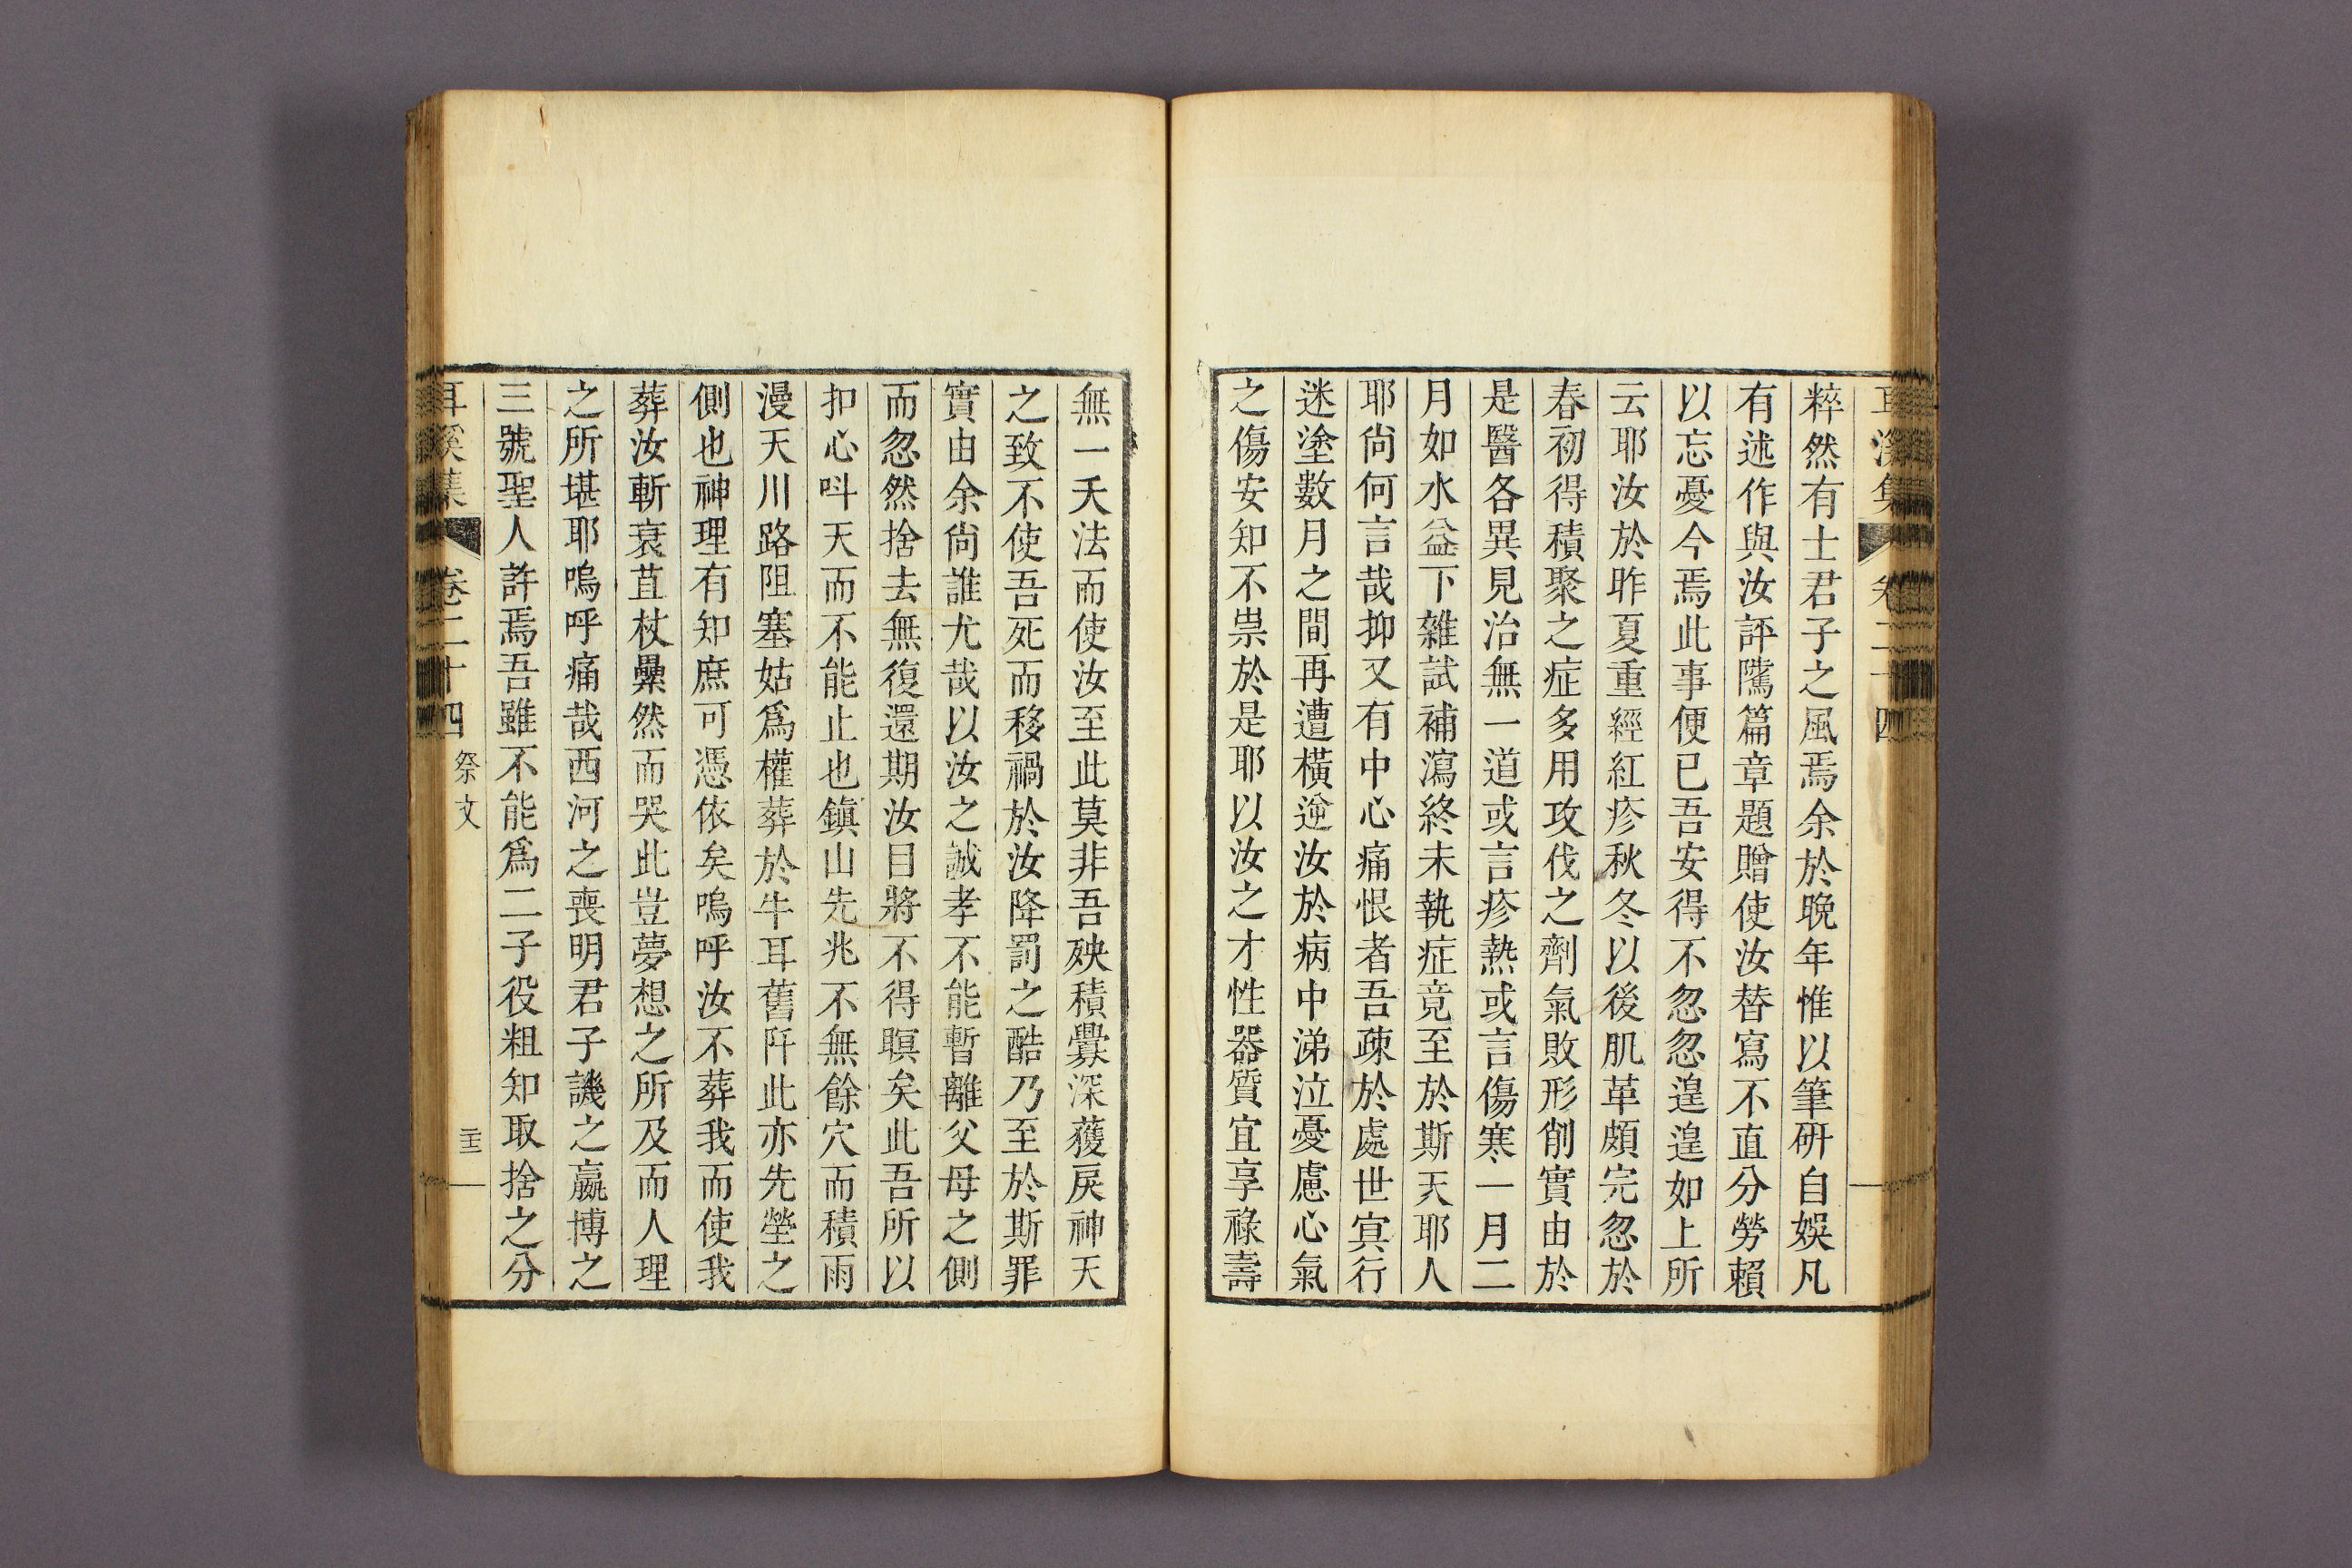 耳溪集 卷二十四
粹然有士君子之風焉余於晩年惟以筆硏自娛凡
有述作與汝評隲篇章題贈使汝替寫不直分勞賴
以忘憂今焉此事便已吾安得不忽忽遑遑如上所
云耶汝於昨夏重經紅疹秋冬以後肌革頗完忽於
春初得積聚之症多用攻伐之劑氣敗形削實由於
是醫各異見治無一道或言疹熱或言傷寒一月二
月如水益下雜試補瀉終未執症竟至於斯天耶人
耶尙何言哉抑又有中心痛恨者吾疎於處世寘行
迷塗數月之間再遭橫逆汝於病中涕泣憂慮心氣
之傷安知不祟於是耶以汝之才性器質宜享祿壽
無一夭法而使汝至此莫非吾殃積釁深蒦戾神天
之致不使吾死而移禍於汝降罰之酷乃至於斯罪
實由余尙誰尤哉以汝之誠孝不能暫離父母之側
而忽然捨去無復還期汝目將不得瞑矣此吾所以
扣心呌天而不能止也鎭山先兆不無餘穴而積雨
漫天川路阻塞姑爲權葬於牛耳舊阡此亦先塋之
側也神理有知庶可憑依矣嗚呼汝不葬我而使我
葬汝斬衰苴杖纍然而哭此豈夢想之所及而人理
之所堪耶嗚呼痛哉西河之喪明君子譏之嬴博之
三號聖人許焉吾雖不能爲二子役粗知取捨之分
耳溪集 卷二十四 祭文